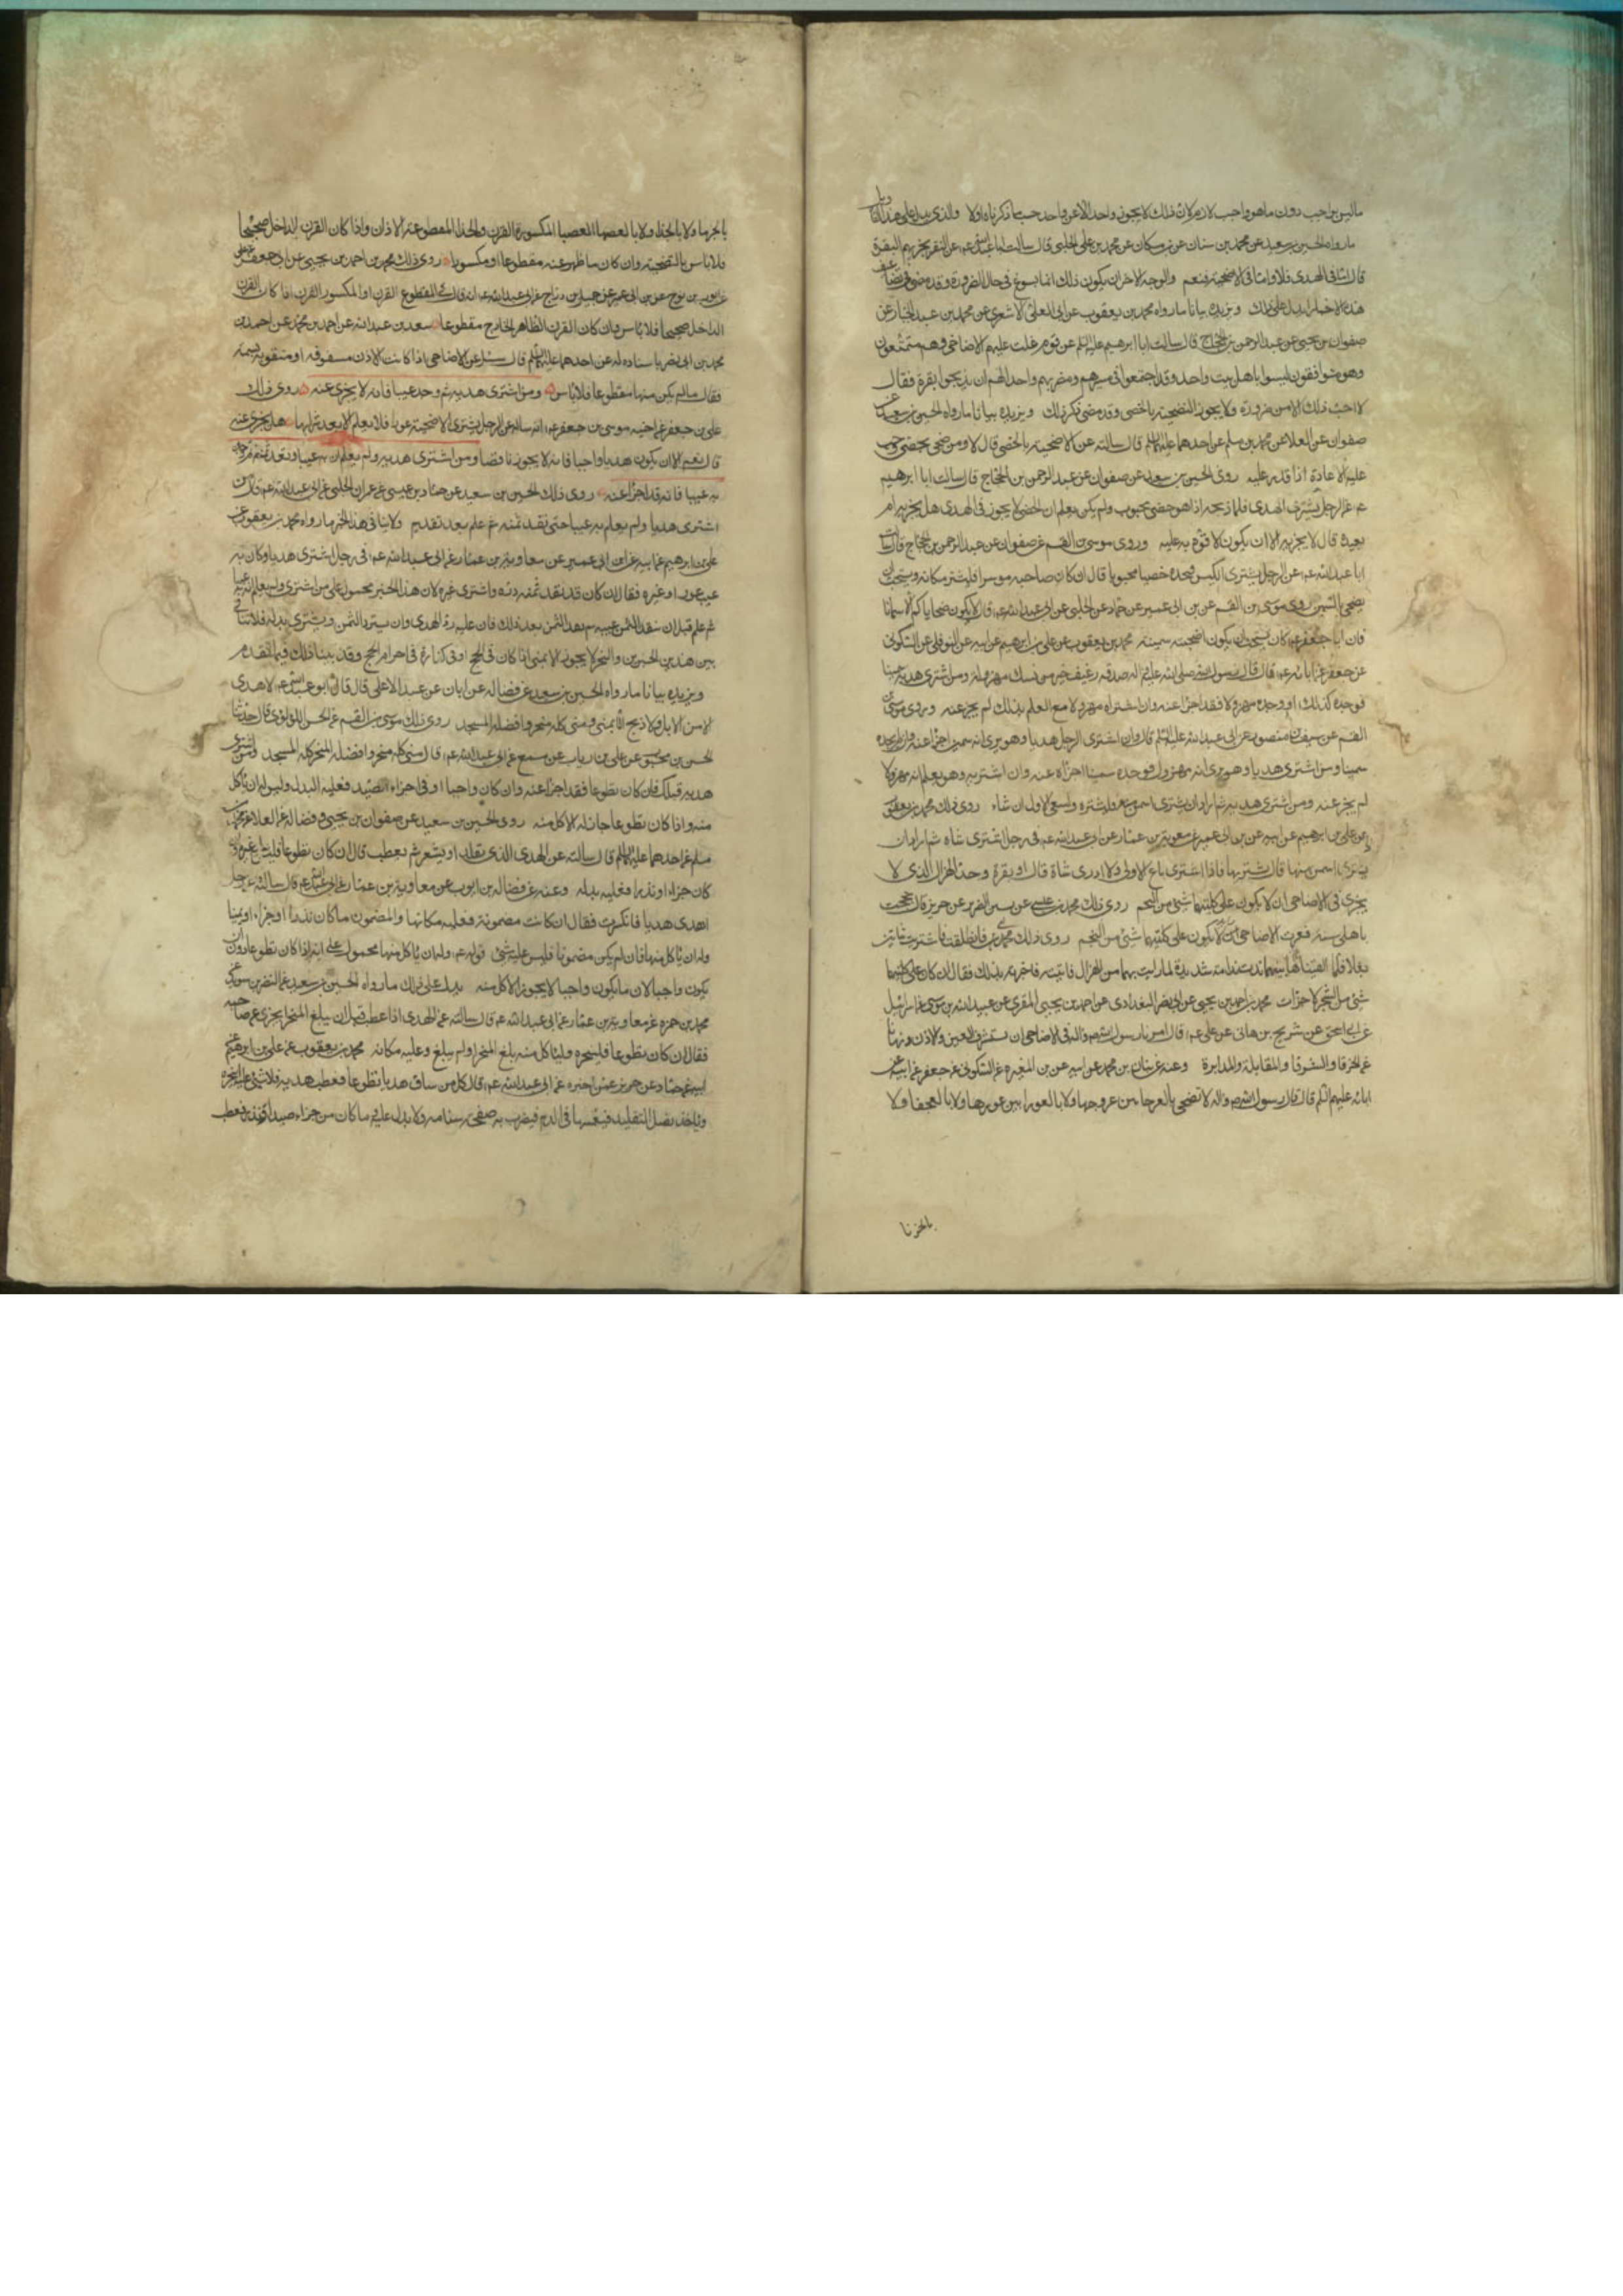 ماليس بواجب دون ماهو واجب لازم لان ذلك لا يجوز فيه واحد الا عن واحد حسب ما ذكرناه اولا والذي يدل على هذا التاويل
مارواه الحسين بن سعيد عن محمد بن سنان عن بن مسكان عن محمد بن علي الحلبي قال سالت ابا عبدالله ع عن النفر يجزيهم البقرة
قال اما في الهدى فلا واما في الاضحية فنعم والوجه الاخر ان يكون ذلك انما يسوغ في حال الضرورة وقد مضى في تضاعيف
هذه الاخبار مايدل على ذلك ويزيده بيانا مارواه محمد بن يعقوب عن ابى على الاشعري عن محمد بن عبد الجبار عن
صفوان بن يحيى عن عبد الرحمن بن الحجاج قال سالت ابا ابرهيم عليه السلم عن قوم غلت عليهم الاضاحى وهم متمتعون
وهم متوافقون ليسوا باهل بيت واحد وقد اجتمعوا في مسيرهم ومضربهم واحد الهم ان يذبحوا بقرة فقال
لا احب ذلك الا من ضرورة ولا يجوز التضحية بالخصى وقد مضى ذكر ذلك ويزيده بيانا مارواه الحسين بن سعيد عن
صفوان عن العلا عن محمد بن مسلم عن احدهما عليهما السلم قال سالته عن الاضحية بالخصى قال لا ومن ضحى بخصى وجب
عليه الاعادة اذا قدر عليه روى الحسين بن سعيد عن صفوان عن عبد الرحمن بن الحجاج قال سالت ابا ابرهيم
ع عن الرجل يشترى الهدى فلما ذبحه اذا هو خصى مجبوب ولم يكن يعلم ان الخصى لا يجوز في الهدى هل يجزيه ام
يعيده قال لا يجزيه الا ان يكون لا قوة به عليه وروى موسى بن القسم عن صفوان عن عبد الرحمن بن الحجاج قال سالت
ابا عبدالله ع عن الرجل يشترى الكبش فيجده خصيا مجبوبا قال ان كان صاحبه موسرا فليشتر مكانه ويستحب ان
يضحى بالسمين روى موسى بن القسم عن بن ابى عمير عن حماد عن الحلبي عن ابى عبدالله ع قال لا يكون ضحاياكم الا سمانا
فان ابا جعفر ع كان يستحب ان يكون اضحيته سمينة محمد بن يعقوب عن علي بن ابرهيم عن ابيه عن النوفلى عن السكونى
عن جعفر عن ابائه ع قال قال رسول الله صلى الله عليه واله صدقة رغيف خير من نسك مهزولة ومن اشترى هديه سمينا
فوجده كذلك او وجده مهزولا فقد اجزا عنه وان اشتراه مهزولا مع العلم بذلك لم يجز عنه وروى موسى بن
القسم عن سيف عن منصور عن ابى عبدالله عليه السلم قال وان اشترى الرجل هديا وهو يرى انه سمين اجزا عنه وان لم يجده
سمينا ومن اشترى هديا وهو يرى انه مهزول فوجده سمينا اجزاه عنه وان اشتريه وهو يعلم انه مهزولا
لم يجز عنه ومن اشترى هديه ثم اراد ان يشترى اسمن منه فليشتره وليبع الاول ان شاء روى ذلك محمد بن يعقوب
عن علي بن ابرهيم عن ابيه عن بن ابى عمير عن معوية بن عمار عن ابى عبدالله ع في رجل اشترى شاة ثم اراد ان
يشترى اسمن منها قال يشتريها فاذا اشترى باع الاولى ولا ادرى شاة قال او بقرة وحد الهزال الذى لا
يجزى في الاضاحى ان لا يكون على كليتيها شئ من الشحم
شئ من الشحم لاجزات محمد بن احمد بن يحيى عن ابى نصر البغدادى عن احمد بن يحيى المقرى عن عبيد الله بن موسى عن اسرائيل
عن ابى اسحق عن شريح بن هانى عن على ع قال امرنا رسول الله ص واله في الاضاحى ان نستشرف العين والاذن ونهانا
عن الخرقا والشرقا والمقابلة والمدابرة وعنه عن بنان بن محمد عن ابيه عن بن المغيرة عن السكونى عن جعفر عن ابيه عن
ابائه عليهم السلم قال قال رسول الله ص واله لا تضحى بالعرجا بين عرجها ولا بالعورا بين عورها ولا بالعجفا ولا
بالخرقا
بالجربا ولا بالجذا ولا بالعضبا العضبا المكسورة القرن والجذا المقطوعة الاذان واذا كان القرن الداخل صحيحا
فلا باس بالتضحية وان كان ما ظهر عنه مقطوعا او مكسورا روى ذلك محمد بن احمد بن يحيى عن ابى جعفر عن على
عن ايوب بن نوح عن بن ابى عمير عن جميل بن دراج عن ابى عبدالله ع انه قال في المقطوع القرن او المكسور القرن اذا كان القرن
الداخل صحيحا فلا باس وان كان القرن الظاهر الخارج مقطوعا سعد بن عبدالله عن احمد بن محمد عن احمد بن
محمد بن ابى نصر باسناد له عن احدهما عليهما السلم قال سئل عن الاضاحى اذا كانت الاذن مشقوقة او مثقوبة بسمة
فقال مالم يكن منها مقطوعا فلا باس ومن اشترى هديه ثم وجد عيبا فانه لا يجزى عنه روى ذلك
على بن جعفر عن اخيه موسى بن جعفر ع انه ساله عن الرجل يشترى الاضحية عورا فلا يعلم الا بعد شرائها هل يجزى عنه
قال نعم الا ان يكون هديا واجبا فانه لا يجوز ناقصا ومن اشترى هديه ولم يعلم ان به عيبا ونقد ثمنه ثم وجد
به عيبا فانه قد اجزا عنه روى ذلك الحسين بن سعيد عن حماد بن عيسى عن عمران الحلبي عن ابى عبدالله ع قال من
اشترى هديا ولم يعلم به عيبا حتى نقد ثمنه ثم علم بعد نقديم ولا ينافى هذا الخبر مارواه محمد بن يعقوب عن
على بن ابرهيم عن ابيه عن ابن ابى عمير عن معاوية بن عمار عن ابى عبدالله ع في رجل اشترى هديا وكان به
عيب عور او غيره فقال ان كان قد نقد ثمنه رده واشترى غيره لان هذا الخبر محمول على من اشترى ولم يعلم انه به عيبا
ثم علم قبل ان ينقد الثمن عيبه ثم نقد الثمن بعد ذلك فان عليه رد الهدى وان يسترد الثمن ويشترى بدله فلا تنافى
بين هذين الخبرين والنحر لا يجوز الا بمنى اذا كان في الحج او في كفارة في احرام الحج وقد بينا ذلك فيما تقدم
ويزيده بيانا مارواه الحسين بن سعيد عن فضالة عن ابان عن عبد الاعلى قال قال ابو عبدالله ع لا هدى
الا من الابل ولا ذبح الا بمنى ومنى كله منحر وافضله المسجد روى ذلك موسى بن القسم عن الحسن اللؤلؤى قال حدثنا
الحسن بن محبوب عن على بن رياب عن مسمع عن ابى عبدالله ع قال منى كله منحر وافضله المنحر كله المسجد ومن اشترى
هديه فهلك فان كان تطوعا فقد اجزا عنه وان كان واجبا او في اجزاء الصيد فعليه البدل وليس له ان ياكل
منه واذا كان تطوعا جاز له الاكل منه روى الحسين بن سعيد عن صفوان بن يحيى وفضالة عن العلا عن محمد بن
مسلم عن احدهما عليهما السلم قال سالته عن الهدى الذى يقلد او يشعر ثم يعطب قال ان كان تطوعا فليس عليه غيره وان
كان جزاء او نذرا فعليه بدله وعنه عن فضالة بن ايوب عن معاوية بن عمار عن ابى عبدالله ع قال سالته عن رجل
اهدى هديا فانكسرت فقال ان كانت مضمونة فعليه مكانها والمضمون ما كان نذرا او جزاء او يمينا
وله ان ياكل منها فان لم يكن مضمونا فليس عليه شئ قوله ع وله ان ياكل منها محمول على انه اذا كان تطوعا دون ان
يكون واجبا لان ما يكون واجبا لا يجوز الاكل منه يدل على ذلك مارواه الحسين بن سعيد عن النضر بن سويد عن
محمد بن حمزه عن معاوية بن عمار عن ابى عبدالله ع قال سالته عن الهدى اذا عطب قبل ان يبلغ المنحر ايجزى عن صاحبه
فقال ان كان تطوعا فلينحره ولياكل منه بلغ المنحر او لم يبلغ وعليه مكانه محمد بن يعقوب عن على بن ابرهيم عن
ابيه عن حماد عن حريز عمن اخبره عن ابى عبدالله ع قال كل من ساق هديا تطوعا فعطب هديه فلا شئ عليه ينحره
وياخذ نعل التقليد فيغمسها في الدم فيضرب به صفحة سنامه ولا بدل عليه وما كان من جزاء صيد او نذر فعطب